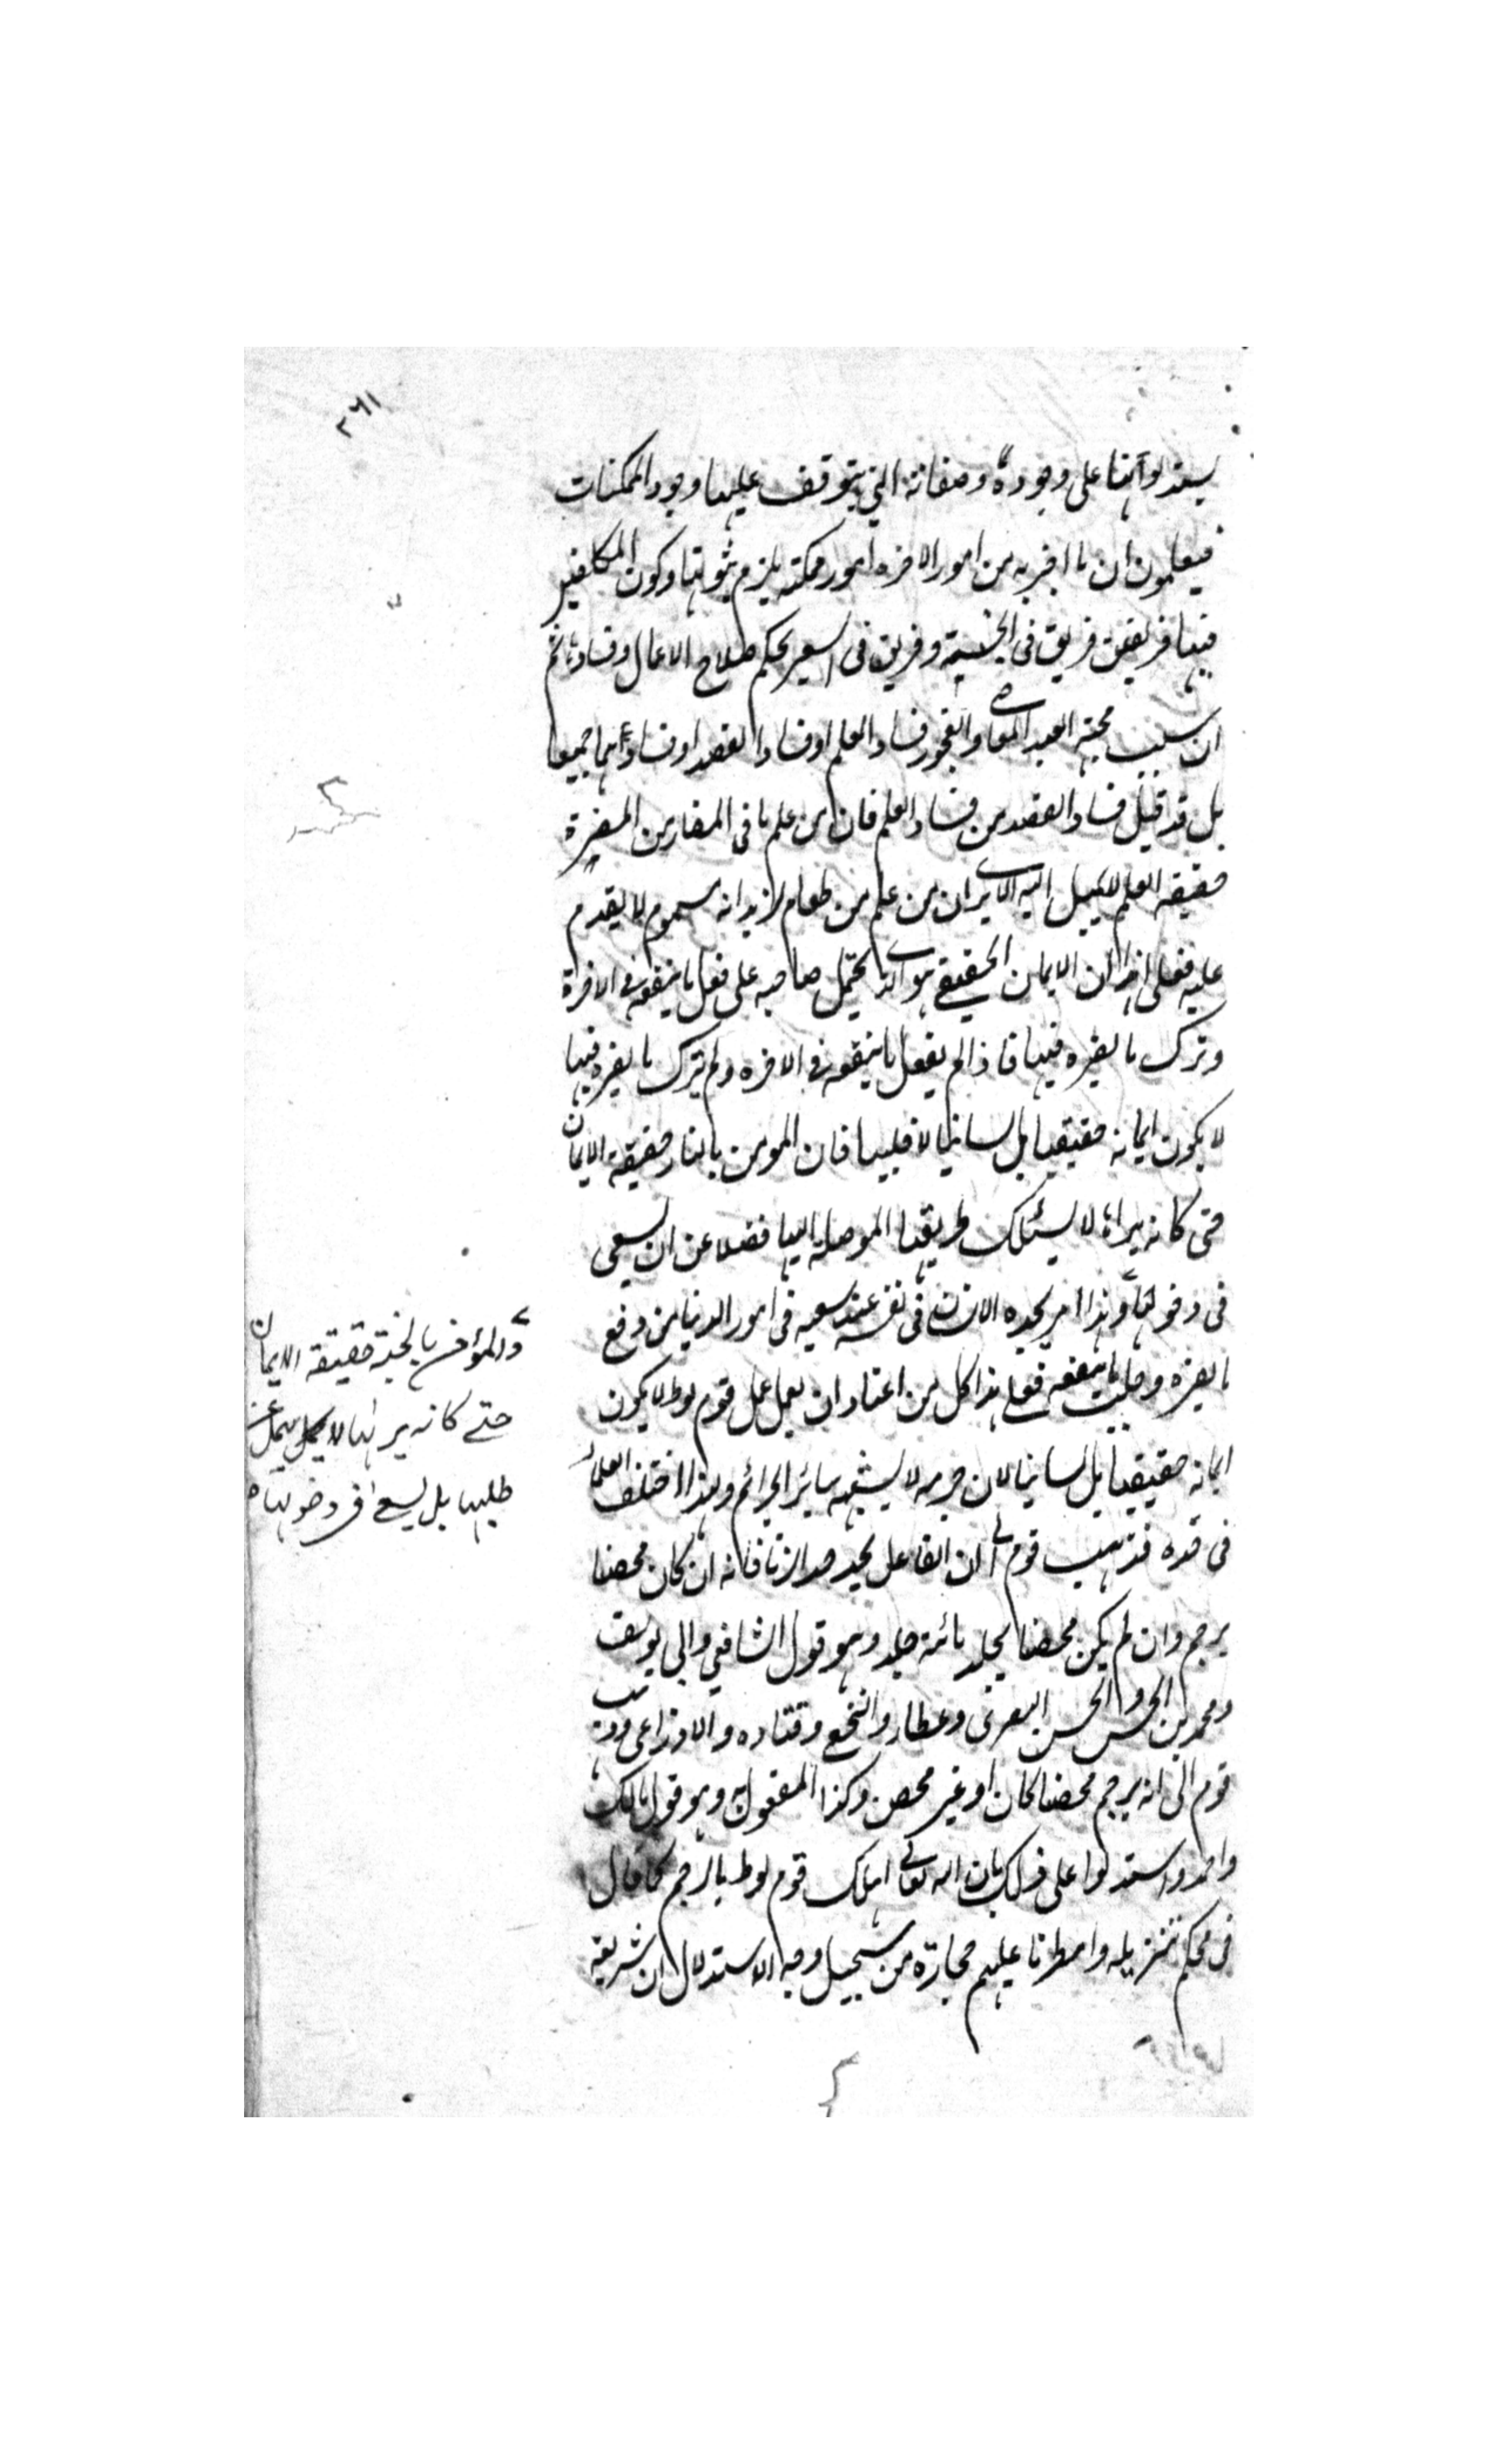 ٣٦١
يستدلوا بها على وجوده وصفاته التي يتوقف عليها وجود الممكنات
فيعلمون ان ما اخبر به من امور الاخره امور ممكنه يلزم ثبوتها وكون المكلفين
فيها فريقين فريق في الجنة وفريق في السعير بحكم صلاح الاعمال وفسادها ثم
ان سبب محبة العبد المعاصي والفجور فساد العلم او فساد القصد او فسادهما جميعا
بل قد قيل فساد القصد من فساد العلم فان من علم ما في المضار من المضرة
حقيقة العلم لا يميل اليه الا يرى ان من علم من طعام لذيذ انه مسموم لا يقدم
عليه فعلى هذا ان الايمان الحقيقي هو الذي يحمل صاحبه على فعل ما ينفعه في الاخرة
وترك ما يضره فيها فاذا لم يفعل ما ينفعه في الاخره ولم يترك ما يضره فيها
لا يكون ايمانه حقيقيا بل لسانيا لا قلبيا فان المومن بالنار حقيقة الايمان
حتى كانه يراها لا يسلك طريقها الموصلة اليها فضلا عن ان يسعى
في دخولها وهذا امر يجده الانسان في نفسه عند سعيه في امور الدنيا من دفع
ما يضره وجلب ما ينفعه فعلى هذا كل من اعتاد ان يعمل عمل قوم لوط لا يكون
ايمانه حقيقيا بل لسانيا لان جرمه لا يشبهه سائر الجرائم ولهذا اختلف العلماء
في حده فذهب قوم الى ان الفاعل يحد حد الزنا فانه ان كان محصنا
يرجم وان لم يكن محصنا يجلد مائة جلد وهو قول الشافعي وابي يوسف
ومحمد بن الحسن والحسن البصرى وعطار والنخعي وقتاده والاوزاعى وذهب
قوم الى انه يرجم محصنا كان او غير محصن وكذا المفعول به وهو قول مالك
واحمد واستدلوا على ذلك بان الله تعالى اهلك قوم لوط بالرجم كما قال
في محكم تنزيله وامطرنا عليهم حجارة من سجيل وجه الاستدلال ان شريعة
والمؤمن بالجنة حقيقة الايمان
حتى كانه يراها لا يكسل عن
طلبها بل يسعى في دخولها